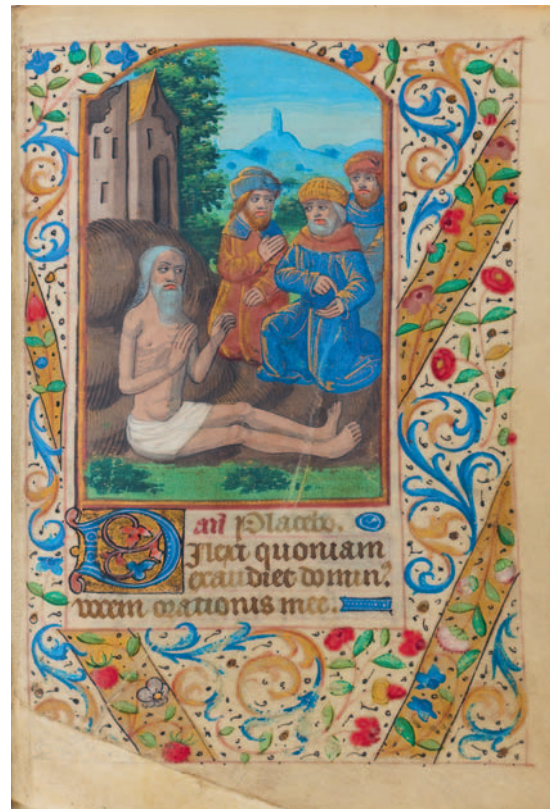 añ Placebo.
Dilexi quoniam
exaudiet domin⁹
vocem orationis mee.